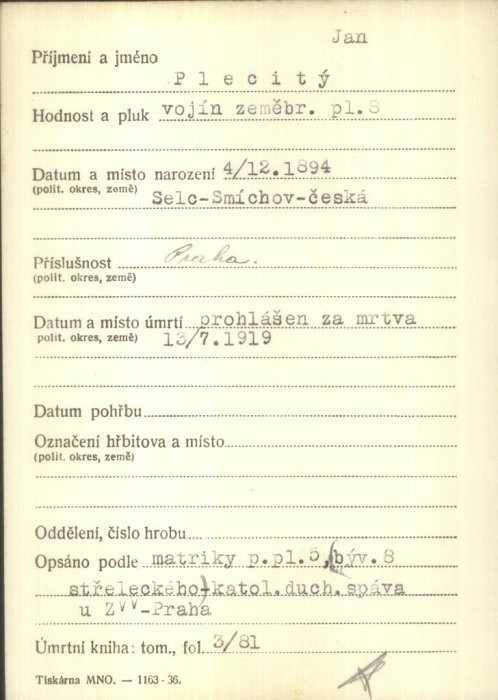 Jan
Příjmení a jméno
Plecitý
Hodnost a pluk vojín zeměbr. pl.8
Datum a místo narození 4/12.1894
(polit. okres, země) Selc-Smíchov-česká
Příslušnost Praha.
(polit. okres, země)
Datum a místo úmrtí prohlášen za mrtva
polit. okres, země) 13/7.1919
Datum pohřbu
Označení hřbitova a místo
(polit. okres, země)
Oddělení, číslo hrobu
Opsáno podle matriky p.pl.5,(býv.8
střeleckého)-katol.duch.spáva
u ZVV-Praha
Úmrtní kniha: tom., fol. 3/81
Tiskárna MNO. — 1163-36.